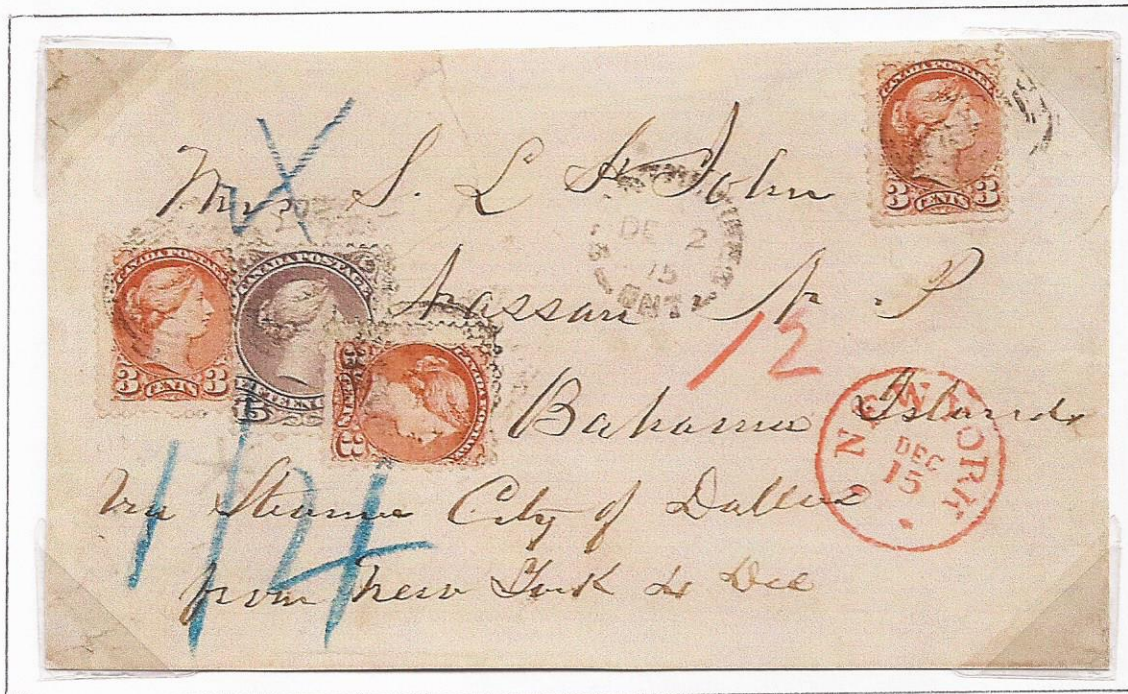 CANADA POSTAGE
3 CENTS 3
Mrs S. L St John
DE 2
75
ONT
CANADA POSTAGE
3 CENTS 3
CANADA POSTAGE
CANADA POSTAGE
3 CENTS 3
Nassau N. P
12
Bahama Islands
NEW YORK
DEC
15
Via Steamer City of Dallas
from New York 4 Dec
1/4